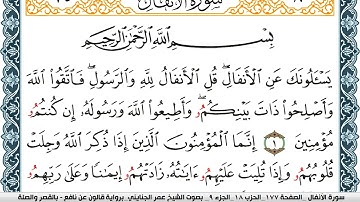 سورة الأنفال
بِسْمِ اللَّهِ الرَّحْمَٰنِ الرَّحِيمِ
يَسْـَٔلُونَكَ عَنِ الْأَنفَالِ قُلِ الْأَنفَالُ لِلَّهِ وَالرَّسُولِ فَاتَّقُوا اللَّهَ
وَأَصْلِحُوا ذَاتَ بَيْنِكُمُ وَأَطِيعُوا اللَّهَ وَرَسُولَهُ إِن كُنتُمُ
مُؤْمِنِينَ ١ إِنَّمَا الْمُؤْمِنُونَ الَّذِينَ إِذَا ذُكِرَ اللَّهُ وَجِلَتْ
قُلُوبُهُمُ وَإِذَا تُلِيَتْ عَلَيْهِمُ ءَايَٰتُهُ زَادَتْهُمُ إِيمَٰنًا وَعَلَىٰ رَبِّهِمُ
سورة الأنفال - الصفحة ١٧٧ - الحزب ١٨ - الجزء ٩ - بصوت الشيخ عمر الجنايني - برواية قالون عن نافع - بالقصر والصلة